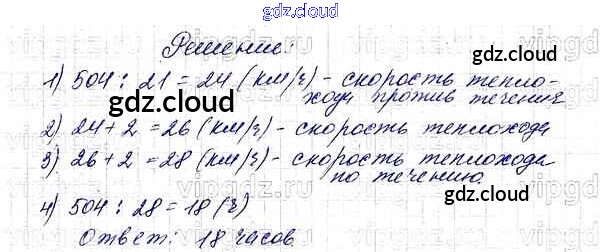 gdz.cloud
Решение:
1) 504 : 21 = 24 (км/ч) - скорость тепло-
хода против течения
2) 24 + 2 = 26 (км/ч) - скорость теплохода
3) 26 + 2 = 28 (км/ч) - скорость теплохода
по течению.
4) 504 : 28 = 18 (ч)
Ответ: 18 часов
gdz.cloud
gdz.cloud
gdz.cloud
gdz.cloud
gdz.cloud
vipgdz.ru